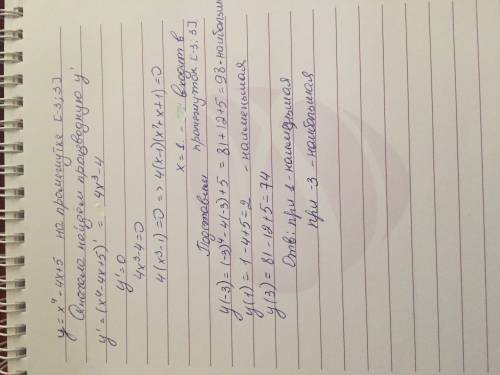 y = x⁴ - 4x + 5 на промежутке [-3; 3]
Сначала найдём производную y'
y' = (x⁴ - 4x + 5)' = 4x³ - 4
y' = 0
4x³ - 4 = 0
4(x³ - 1) = 0 => 4(x-1)(x²+x+1) = 0
x = 1 - входит в
промежуток [-3; 3]
Подставим
y(-3) = (-3)⁴ - 4(-3) + 5 = 81 + 12 + 5 = 98 - наибольшая
y(1) = 1 - 4 + 5 = 2 - наименьшая
y(3) = 81 - 12 + 5 = 74
Отв: при 1 - наименьшая
при -3 - наибольшая